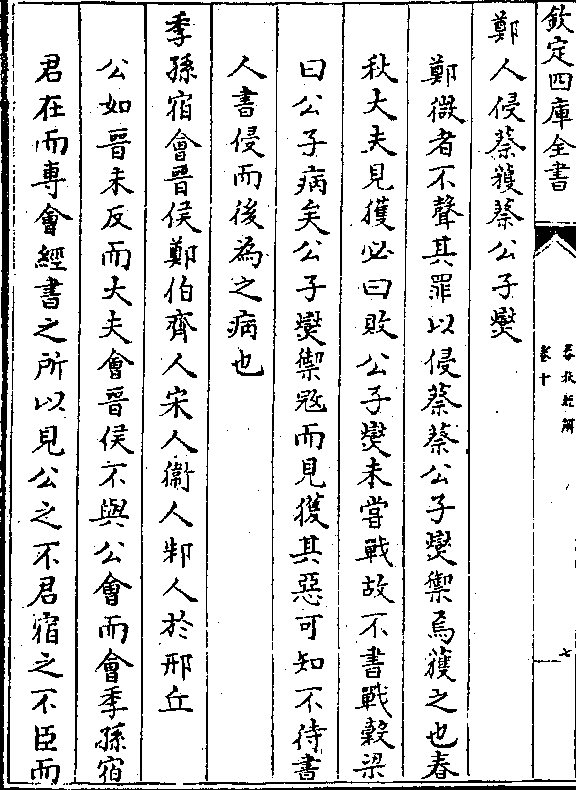 欽定四庫全書
春秋經解
卷十
七
鄭人侵蔡獲蔡公子燮
鄭微者不聲其罪以侵蔡蔡公子燮禦焉獲之也春
秋大夫見獲必曰敗公子燮未嘗戰故不書戰榖梁
曰公子病矣公子燮禦寇而見獲其惡可知不待書
人書侵而後為之病也
季孫宿會晉侯鄭伯齊人宋人衞人邾人於邢丘
公如晉未反而大夫會晉侯不與公會而會季孫宿
君在而專會經書之所以見公之不君宿之不臣而